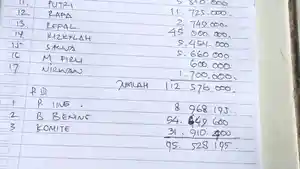 11. PUTRI 5 310 000.
12 RARA 11 725 000.
13 REFAL 2 749 000.
14 RIZKILAH 45 000 000.
15 SALWA 5.454 000.
16 M FIRLI 5.660 000
17 NIRWAN 600 000.
1.700 000.
JUMLAH 112 576 000.
RB
1 R ING. 8 968 195
2 B BENING 54. 649 600
3 KOMITE 31. 910 400
95. 528 195